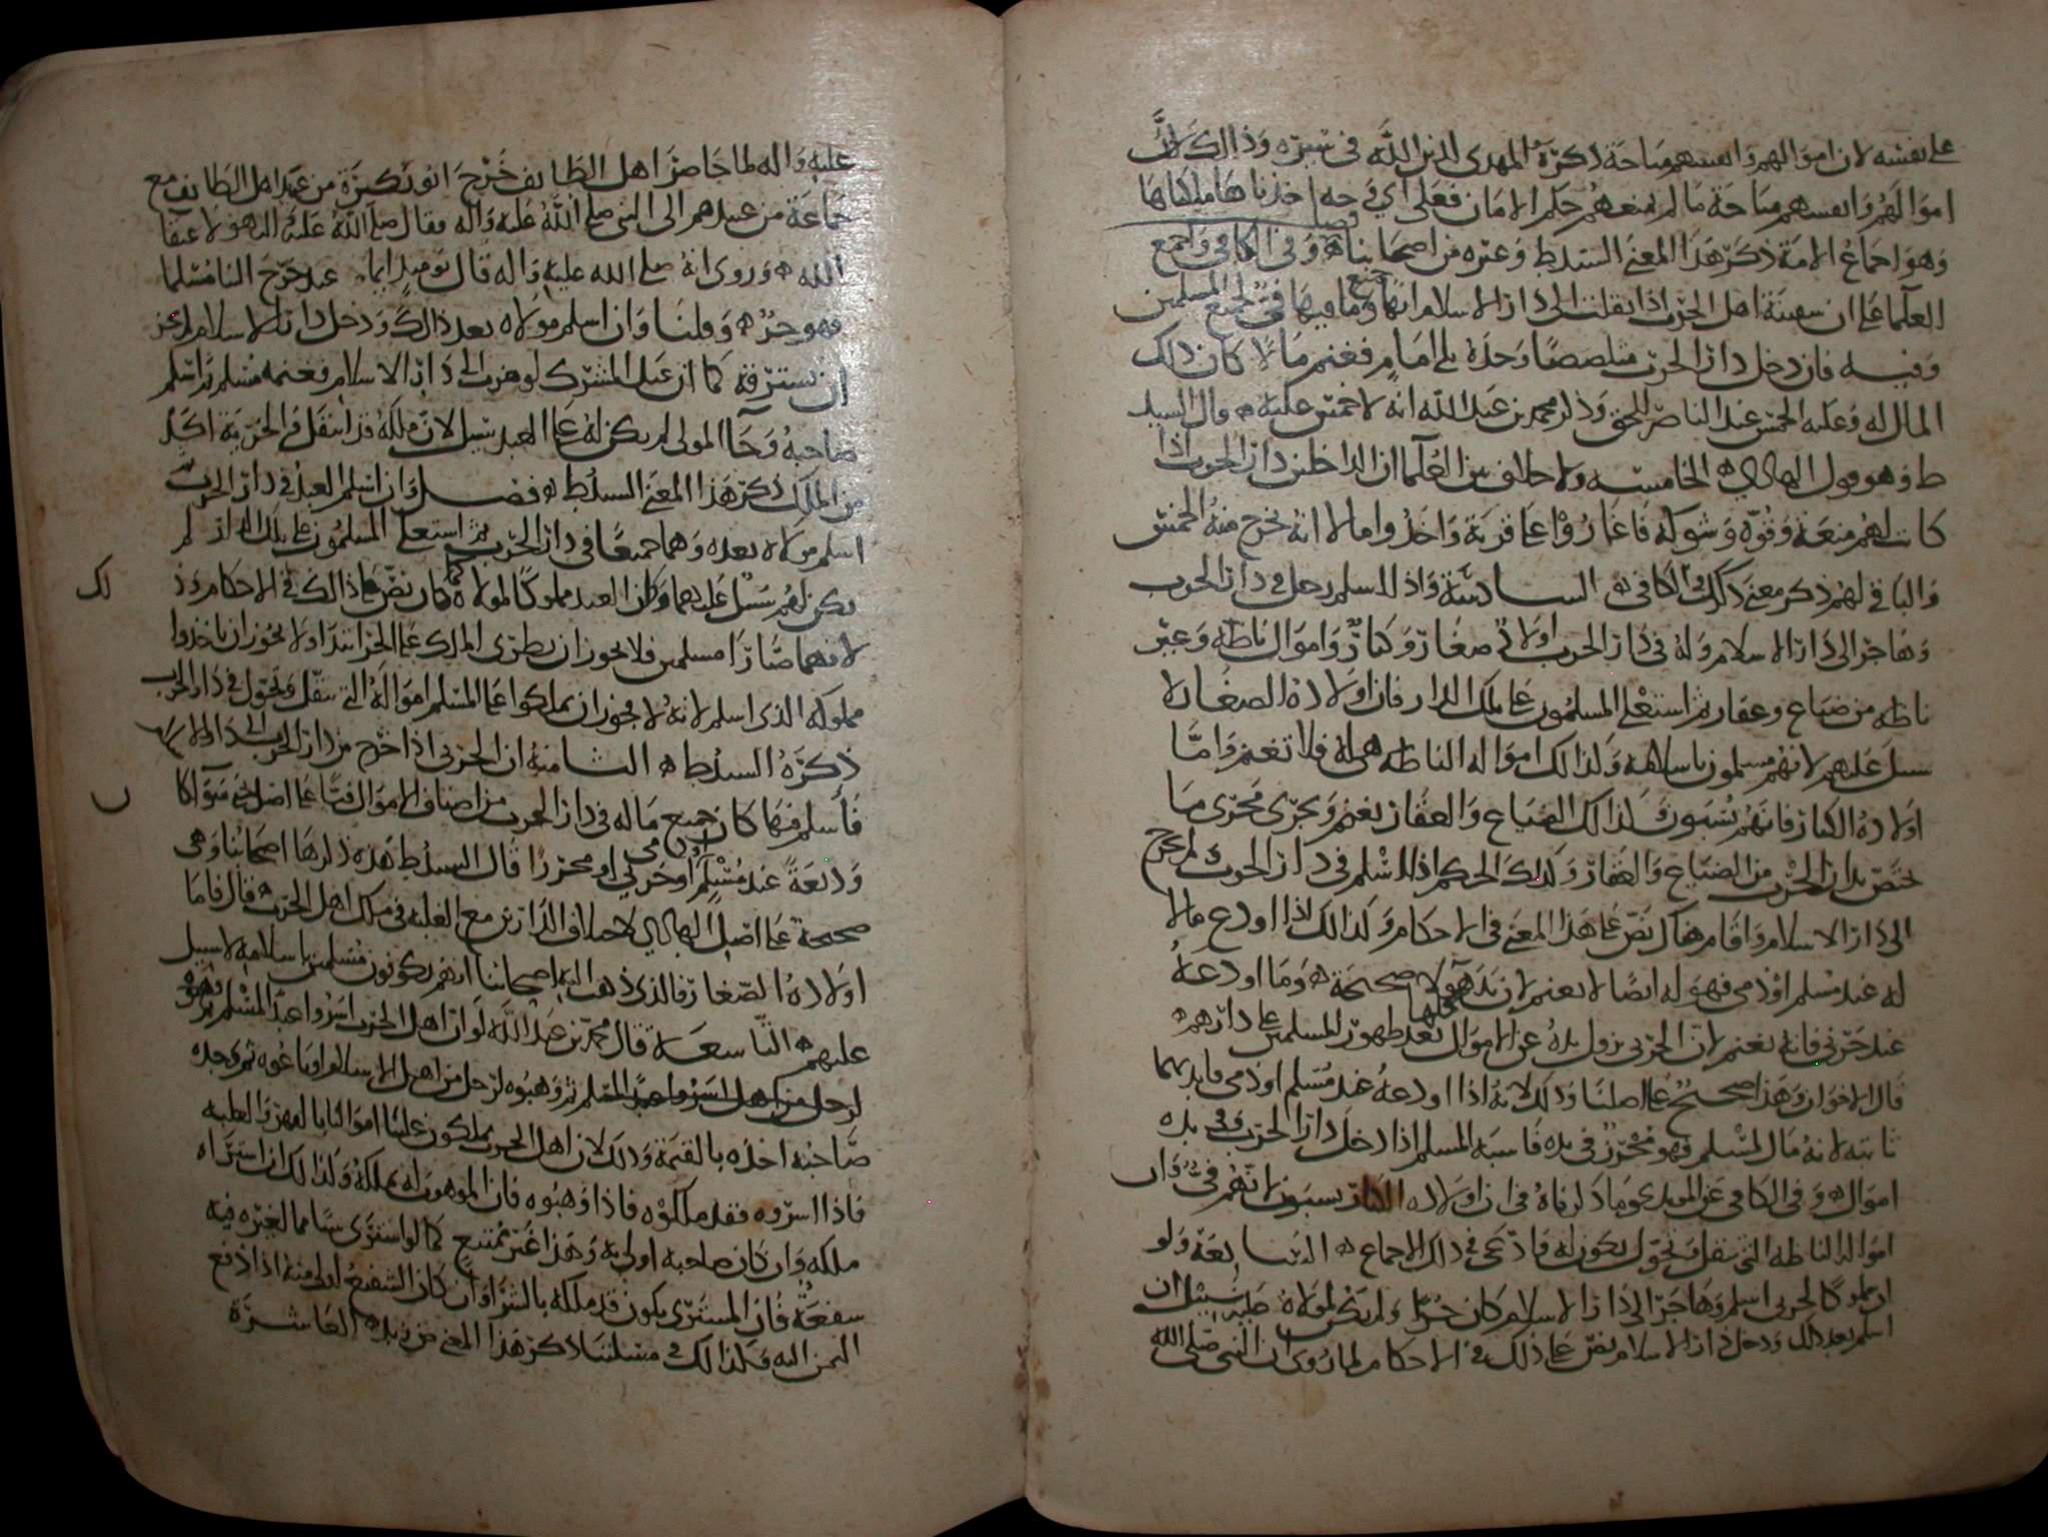 على نفسه لان اموالهم وانفسهم مباحة ذكره المهدي لدين الله في سيره وذالك لان
اموالهم وانفسهم مباحة ما لم يمنعهم حكم الامان فعلى اي وجه اخذناها ملكناها
وهو اجماع الامة ذكر هذا المعنى السيد ط وغيره من اصحابنا فصل وفي الكافي واجمع
العلما على ان سفينة اهل الحرب اذا نقلت الى دار الاسلام انها وما فيها فيء لجميع المسلمين
وفيه فان دخل دار الحرب متلصصا وحده بلا امام فغنم مالا كان ذلك
المال له وعليه الخمس عند الناصر للحق وذكر محمد بن عبدالله انه لا خمس عليه قال السيد
ط وهو قول الهادي الخامسه ولا خلاف بين العلما ان الداخلين دار الحرب اذا
كانت لهم منعة وقوه وشوكه فاغاروا على قرية واخذوا مالا انه يخرج منه الخمس
والباقي لهم ذكر معنى ذلك في الكافي السادسة واذا اسلم رجل في دار الحرب
وهاجر الى دار الاسلام وله في دار الحرب اولاد صغار وكبار واموال ناطقه وغير
ناطقه من ضياع وعقار ثم استعلى المسلمون على تلك الدار فان اولاده الصغار لا
سبيل عليهم لانهم مسلمون باسلامه وكذالك امواله الناطقه هي له فلا تغنم واما
اولاده الكبار فانهم يسبون وكذالك الضياع والعقار يغنم ويجرى مجرى ما
يختص بدار الحرب من الضياع والعقار وكذلك الحكم اذا اسلم في دار الحرب ولم يخرج
الى دار الاسلام واقام هناك نص على هذا المعنى في الاحكام وكذالك اذا اودع مالا
له عند مسلم او ذمي فهو له ايضا لا يغنم لان يد هولا صحيحة وما اودعه
عند حربي فانه يغنم لان الحربي يزول يده عن الاموال بعد ظهور المسلمين على دارهم
قال الاخوان وهذا صحيح على اصلنا وذلك لانه اذا اودعه عند مسلم او ذمي فايديهما
ثابته لانه مال المسلم فهو محرز في يده فاشبه المسلم اذا دخل دار الحرب وفي يده
اموال وفي الكافي عن المويد وما ذكرناه في ان اولاده الكبار يسبون لانهم فيء وان
امواله الناطقه التي تنقل وتحول يكون له فادعى في ذلك الاجماع السابعة ولو
ان مملوكا لحربي اسلم وهاجر الى دار الاسلام كان حرا ولم يكن لمولاه عليه سبيل ان
اسلم بعد ذلك ودخل دار الاسلام نص على ذلك في الاحكام لما روي ان النبي صلى الله
عليه واله لما حاصر اهل الطايف خرج ابو بكرة من عبيد اهل الطايف مع
جماعة من عبيدهم الى النبي صلى الله عليه واله فقال صلى الله عليه واله هولا عتقا
الله وروي انه صلى الله عليه واله قال يوميد ايما عبد خرج الينا مسلما
فهو حر وقلنا وان اسلم مولاه بعد ذالك ودخل دار الاسلام لم يجز
ان يسترقه كما ان عبد المشرك لو هرب الى دار الاسلام فغنمه مسلم ثم اسلم
صاحبه وجا المولى لم يكن له على العبد سبيل لان ملكه قد انتقل والحرية اكد
من الملك ذكر هذا المعنى السيد ط فصل وان اسلم العبد في دار الحرب
اسلم مولاه بعده وهما جميعا في دار الحرب ثم استعلى المسلمون على تلك الدار لم
يكن لهم سبيل عليهما وكان العبد مملوكا لمولاه كما كان نص على ذالك في الاحكام وذلك
لانهما صارا مسلمين فلا يجوز ان يطرى الملك على الحر ابتدا ولا يجوز ان ياخذوا
مملوكه الذي اسلم لانه لا يجوز ان يملكوا على المسلم امواله التي تنقل وتحول في دار الحرب
ذكره السيد ط الثامنة ان الحربي اذا خرج من دار الحرب الى دار الاسلام
فاسلم فيها كان جميع ماله في دار الحرب من اصناف الاموال فيئا على اصل يحيى سوا كا
وديعة عند مسلم او حربي او ذمي او محرزا قال السيد ط هذه ذكرها اصحابنا وهي
صحيحة على اصل الهادي لاختلاف الدارين مع الغلبه في ملك اهل الحرب قال فاما
اولاده الصغار فالذي ذهب اليه اصحابنا انهم يكونون مسلمين باسلامه لا سبيل
عليهم التاسعة قال محمد بن عبد الله لو ان اهل الحرب اسروا عبد المسلم ثم وهبوه
لرجل من اهل الاسلام او باعوه ثم وجده
صاحبه اخذه بالقيمة وذلك لان اهل الحرب يملكون علينا اموالنا بالقهر والغلبه
فاذا اسروه فقد ملكوه فاذا وهبوه فان الموهوب له يملكه وكذالك ان اشتراه
ملكه وان كان صاحبه اولى به وهذا غير ممتنع كما لو اشترى شيا مما لغيره فيه
شفعة فان المشتري يكون قد ملكه بالشرا وان كان الشفيع اولى منه اذا دفع
الثمن اليه وكذالك في مسلتنا ذكر هذا المعنى من زيد العاشرة